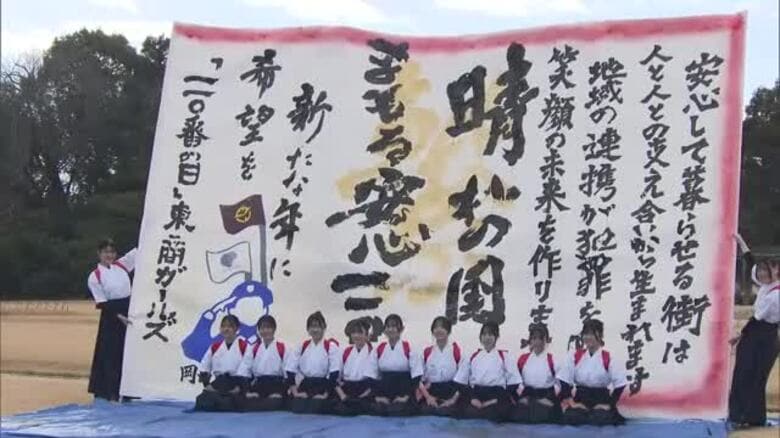 安心して暮らせる街は
人と人との支え合いから生まれます
地域の連携が犯罪を
笑顔の未来を作ります
晴れの国
まもる安心
新たな年に
希望を
一一〇番の日 東商ガールズ
岡